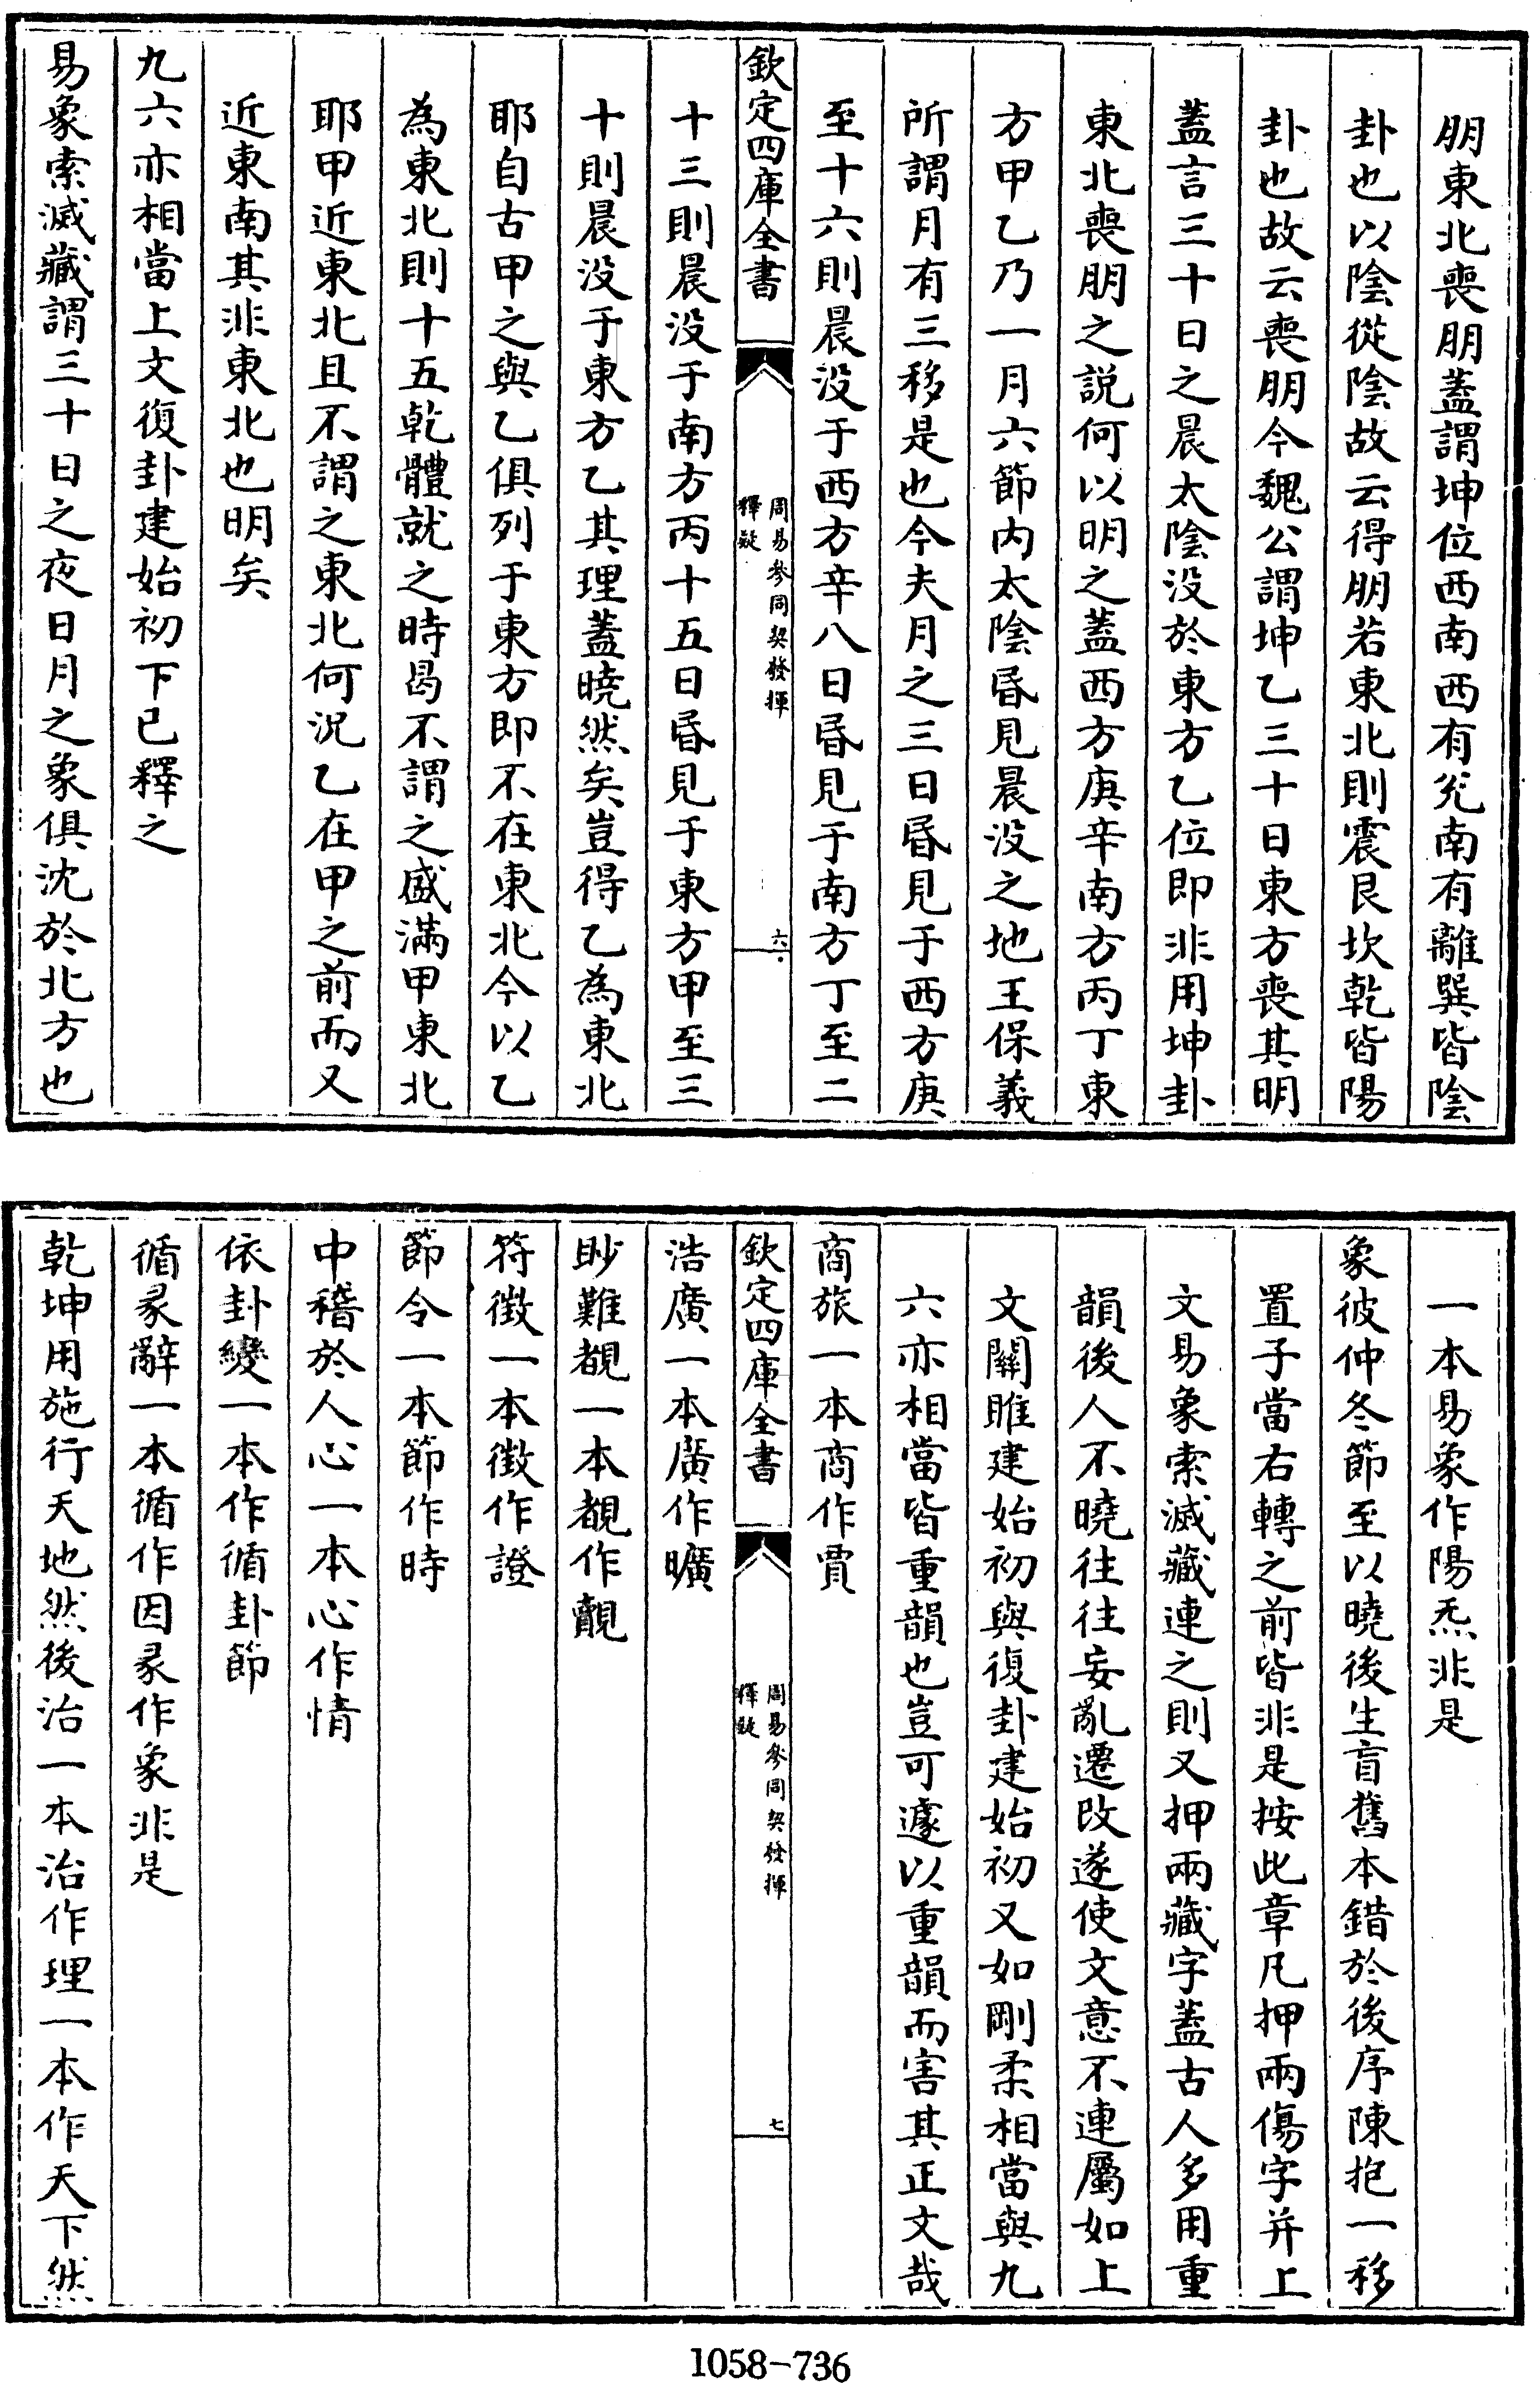 朋東北喪朋蓋謂坤位西南西有兊南有離巽皆陰
卦也以陰從陰故云得朋若東北則震艮坎乾皆陽
卦也故云喪朋今魏公謂坤乙三十日東方喪其明
蓋言三十日之晨太陰没於東方乙位即非用坤卦
東北喪朋之説何以明之蓋西方庚辛南方丙丁東
方甲乙乃一月六節内太陰昏見晨没之地王保義
所謂月有三移是也今夫月之三日昏見于西方庚
至十六則晨没于西方辛八日昏見于南方丁至二
欽定四庫全書
周易參同契發揮
釋疑
六
十三則晨没于南方丙十五日昏見于東方甲至三
十則晨没于東方乙其理蓋曉然矣豈得乙為東北
耶自古甲之與乙俱列于東方即不在東北今以乙
為東北則十五乾體就之時曷不謂之盛滿甲東北
耶甲近東北且不謂之東北何況乙在甲之前而又
近東南其非東北也明矣
九六亦相當上文復卦建始初下已釋之
易象索滅藏謂三十日之夜日月之象俱沈於北方也
一本易象作陽炁非是
象彼仲冬節至以曉後生盲舊本錯於後序陳抱一移
置子當右轉之前皆非是按此章凡押兩傷字并上
文易象索滅藏連之則又押兩藏字蓋古人多用重
韻後人不曉往往妄亂遷改遂使文意不連屬如上
文關雎建始初與復卦建始初又如剛柔相當與九
六亦相當皆重韻也豈可遽以重韻而害其正文哉
商旅一本商作賈
欽定四庫全書
周易參同契發揮
釋疑
七
浩廣一本廣作曠
眇難覩一本覩作覿
符徴一本徴作證
節令一本節作時
中稽於人心一本心作情
依卦變一本作循卦節
循彖辭一本循作因彖作象非是
乾坤用施行天地然後治一本治作理一本作天下然
1058-736